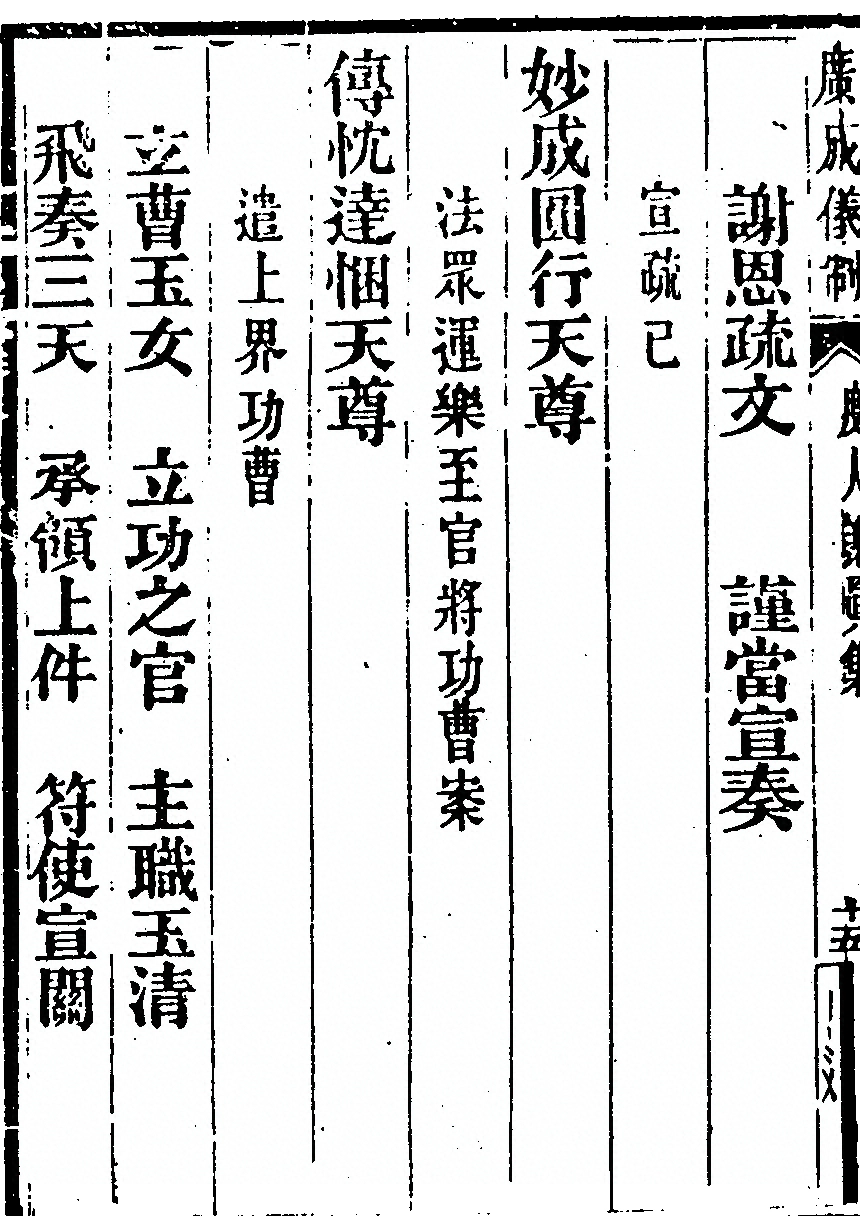 廣成儀制
度人
十五
謝恩疏文　謹當宣奏
宣疏已
妙成圓行天尊
法眾運樂至官將功曹案
傳忱達悃天尊
遣上界功曹
立曹玉女　立功之官　主職玉清
飛奏三天　承領上件　符使宣關